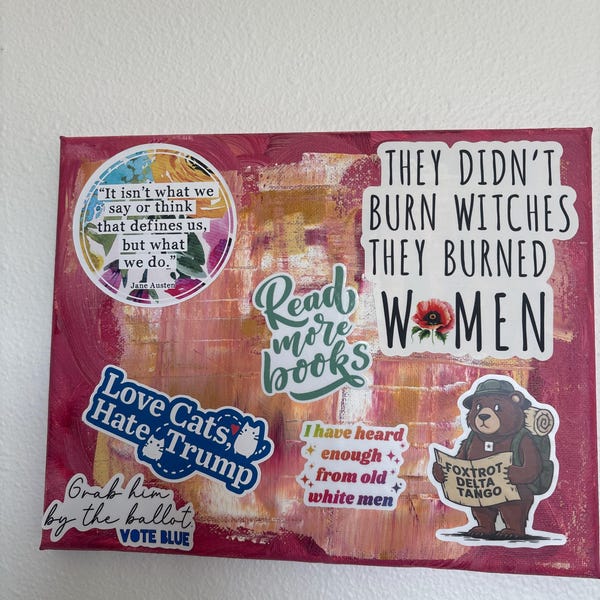 “It isn’t what we
say or think
that defines us,
but what
we do.”
Jane Austen
THEY DIDN’T
BURN WITCHES
THEY BURNED
WOMEN
Read
more
books
Love Cats,
Hate Trump
I have heard
enough
from old
white men
FOXTROT
DELTA
TANGO
Grab him
by the ballot.
VOTE BLUE